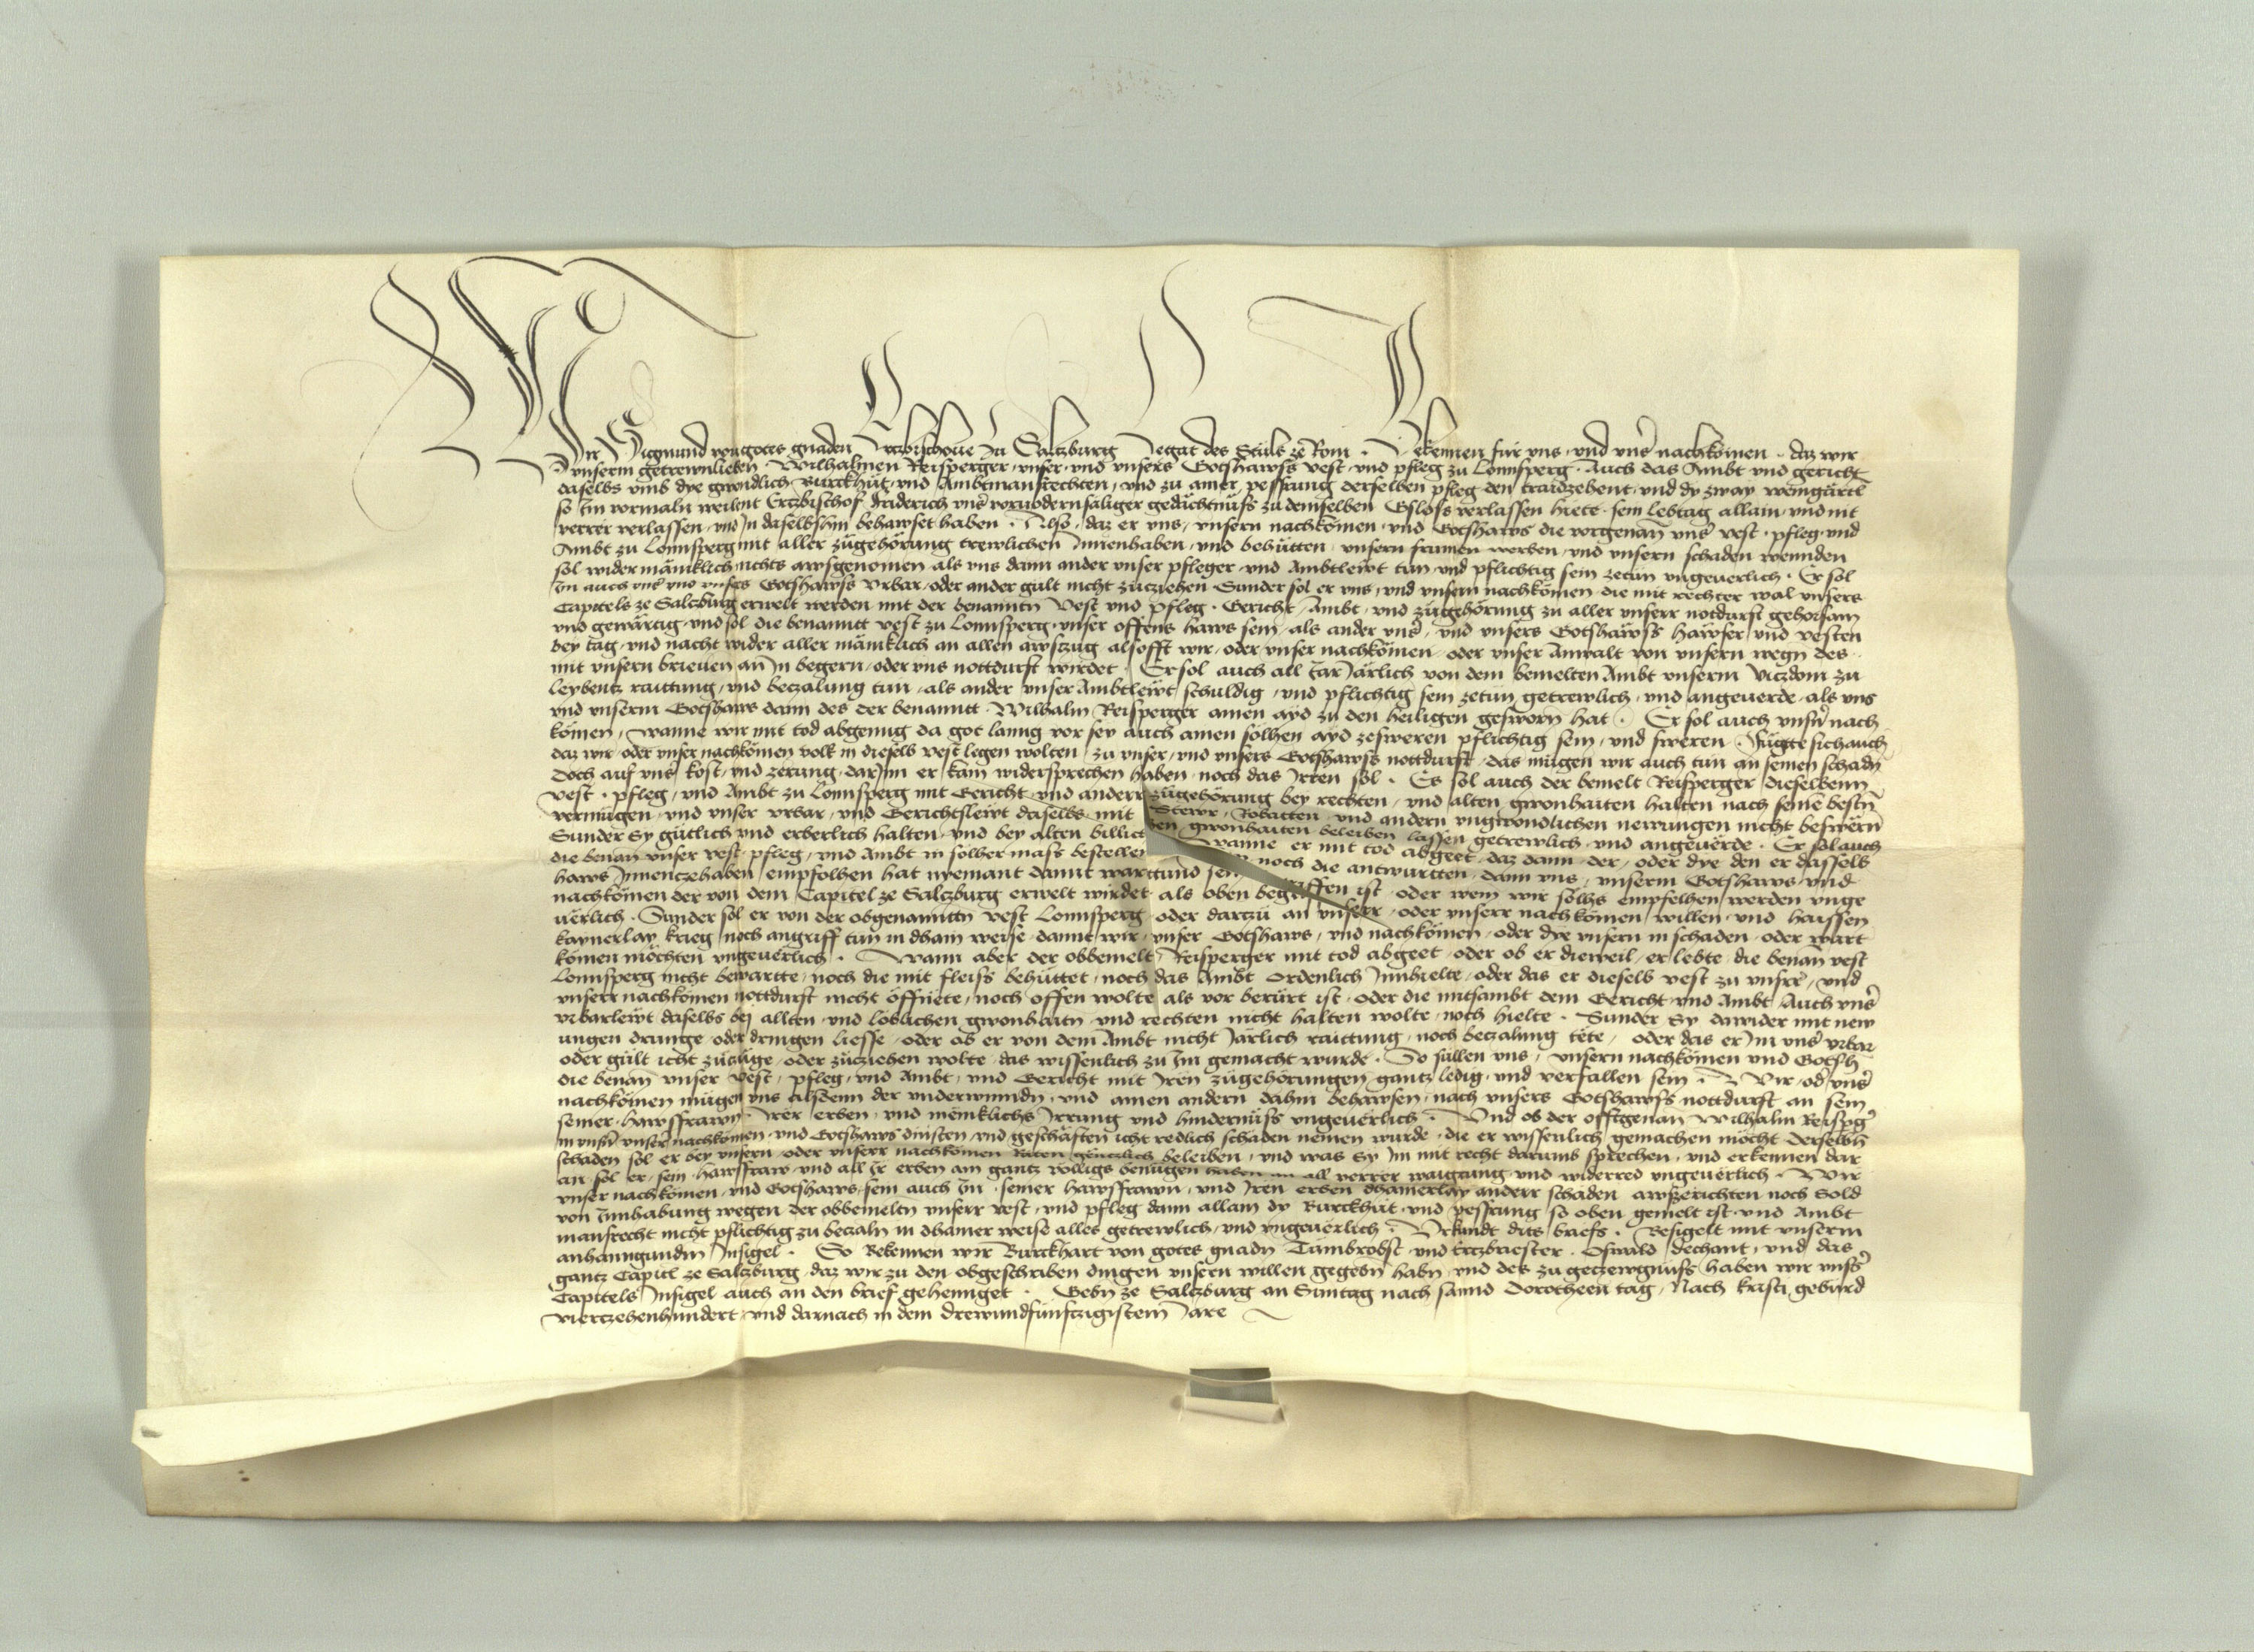 Wir Sigmund von gotes gnaden Ertzbischoue zu Saltzburg Legat des Stuls ze Rom · Bekennen für vns · vnd vnser nachkomen · daz wir
vnserm getrewnlieben Wilhalmen Reisperger vnser vnd vnsers Gotshawss vest · vnd pfleg zu Lonnsperg · Auch das Ambt vnd gericht
daselbs vmb dye gwondlich Burckhut vnd Ambtmansrechten / vnd zu ainer pessrung derselben pfleg den traidzehent · vnd dy zway weingärtl
so Im vormaln weilent Ertzbischof Friderich vnser voruodern säliger gedächtnüss zu demselben Gsloss verlassen hiete · sein lebtag allain · vnd nit
verrer verlassen / vnd In daselbshin behawset haben · Also / daz er vns / vnsern nachkömen · vnd Gotshaws die vorgenan vnser vest · pfleg · vnd
Ambt zu Lonnsperg mit aller zůgehörung trewlichen Innenhaben / vnd behütten / vnsern frumen werben / vnd vnsern schaden wennden
sol wider mäniklich nichts awsgenomen als vns dann ander vnser pfleger vnd Ambtlewt tun vnd pflichtig sein zetůn vngeuerlich · Er sol
Im auch vnser vnd vnsers Gotshawss vrbar · oder ander gült nicht zuziehen Sunder sol er vns / vnd vnsern nachkömen · die mit rechter wal vnsers
Capitels ze Saltzburg erwelt werden mit der benanntn Vest vnd Pfleg · Gericht / Ambt · vnd zůgehörung zu aller vnserr notdurft gehorsam
vnd gewärtig · vnd sol die benannt vest zu Lonnsperg · vnser offens haws sein / als ander vnser / vnd vnsers Gotshawss häwser / vnd vesten
bey tag · vnd nacht wider aller mäniklich an allen awszug alsofft wir / oder vnser nachkömen / oder vnser Anwalt von vnsern wegn des ·
mit vnsern brieuen an In begern / oder vns nottdurft wirdet · Er sol auch all Jar Järlich von dem bemelten Ambt vnserm Vicztom zu
Leybentz raittung / vnd beczalung tun / als ander vnser Ambtlewt schuldig / vnd pflichtig sein zetůn getrewlich / vnd angeuerde · als vns
vnd vnserm Gotshaws dann des der benannt Wilhalm Reisperger ainen ayd zu den heiligen gesworn hat · Er sol auch vnsern nach
kömen / wanne wir mit tod abgenng da got lanng vor sey auch ainen sölhen ayd zesweren pflichtig sein / vnd sweren · Fügte sich auch
daz wir oder vnser nachkömen volk in dieselb vest legen wolten / zu vnser / vnd vnsers Gotshawss nottdurft / das mügen wir auch tun an seinen schadn
doch auf vnser kost / vnd zerung / darInn er kain widersprechen haben / noch das Irren sol · Es sol auch der bemelt Reisperger dieselbenn
vest · pfleg / vnd Ambt zu Lonnsperg mit Gericht vnd anderr zůgehörung bey rechten / vnd alten gwonhaiten halten nach seinem bestn
vermügen / vnd vnser vrbar / vnd Gerichtslewt daselbs mit Stewr / Robatten · vnd andern vngwondlichen newrungen nicht beswern
Sunder Sy gütlich vnd erberlich halten vnd bey alten billich gwonhaiten beleiben lassen getrewlich / vnd angeuerde · Er sol auch
die benan vnser vest · pfleg / vnd Ambt in solher mass bestellen Wanne er mit tod abgeet / daz dann der / oder dye den er dasselb
haws Innenczehaben empfolhen hat nyemant damit wartund sein noch die antwurtten / dann vns / vnserm Gotshaws / vnd
nachkömen der von dem Capitel ze Saltzburg erwelt wirdet als oben begriffen ist / oder wem wir sölhs empfelhen werden vnge
uerlich · Sunder sol er von der obgenanntn vest Lonnsperg · oder dartzů an vnserr / oder vnserr nachkömen / willen / vnd haissen
kaynerlay krieg / noch angriff tun in dhain weise / damit wir / vnser Gotshaws / vnd nachkömen / oder dye vnsern in schaden / oder wart
komen möchten vngeuerlich · Wann aber der obbemelt Reisperger mit tod abgeet / oder ob er dieweil er lebte / die benan vest
Lonnsperg nicht bewartte / noch die mit fleiss behüttet / noch das Ambt ordenlich Innhielte / oder das er dieselb vest zu vnserr / vnd
vnserr nachkömen nottdurft nicht öffnete / noch offen wolte als vor berürt ist / oder die mitsambt dem Gericht vnd Ambt / Auch vnser
vrbarlewt daselbs bei allten / vnd löblichen gwonhaitn / vnd rechten nicht halten wolte / noch hielte · Sunder Sy dawider mit new
ungen drunge / oder dringen liesse / oder ob er von dem Ambt nicht Järlich raittung / noch beczalung tête / oder das er Im vnser vrbar
oder gült icht zůzüge / oder zůziehen wolte / das wissenlich zu Im gemacht wurde · So süllen vns / vnsern nachkömen vnd Gotsh
die benan vnser Vest / pfleg / vnd Ambt / vnd Gericht mit Iren zůgehörungen gantz ledig / vnd verfallen sein · Wir / oder vnser
nachkömen mügen vns alsdenn der vnderwinndn / vnd ainen andern dahin behawsen / nach vnsers Gotshawss nottdurft an sein
seiner hawsfrawn · Irer erben / vnd mäniklichs Irrung vnd hindernüss vngeuerlich · Vnd ob der offtgenan Wilhalm Reispger
in vnsern vnserr nachkömen / vnd Gotshaws dinsten / vnd geschäften icht redlich schäden nemen wurde / die er wissenlich gemachen möcht derselbn
schäden sol er bey vnsern / oder vnserr nachkömen Räten gentzlich beleiben / vnd was Sy Im mit recht darumb sprechen / vnd erkennen dar
an sol er / sein hawsfraw vnd all Ir erben ain gantz völligs benügen haben an all verrer waigrung vnd widerred vngeuerlich · Wir
vnser nachkömen / vnd Gotshaws / sein auch Im · seiner hawsfrawn / vnd Iren erben dhainerlay anderr schäden awszerichten noch Sold
von Innhabung wegen der obbemeltn vnserr vest / vnd pfleg dann allain dy Burckhut / vnd pessrung so oben gemelt ist · vnd Ambt
mansrecht nicht pflichtig zu beczaln in dhainer weise alles getrewlich / vnd vngeuerlich · Vrkundt ditz briefs · Besigelt mit vnserm
anhanngundm Insigel · So Bekennen wir Burckhart von gotes gnadn Tumbrobst / vnd Ertzbriester · Oswald dechant / vnd das
gantz Capitel ze Saltzburg / daz wir zu den obgeschriben dingen vnsern willen gegebn habn / vnd des zu getzewgnüss haben wir vnsers
Capitels Insigel auch an den brief gehennget · Gebn ze Saltzburg an Suntag nach sannd Dorotheen tag / Nach kristi geburd
viertzehenhundert / vnd darnach in dem drewundfünftzigistem Jare